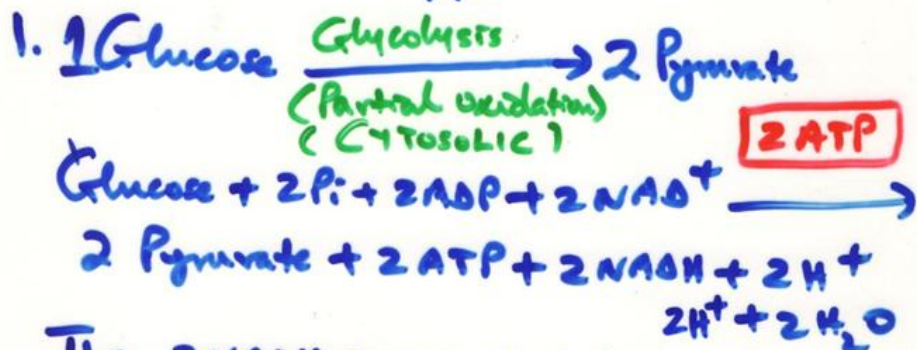 1. 1 Glucose Glycolysis → 2 Pyruvate
(Partial oxidation)
(CYTOSOLIC)
2 ATP
Glucose + 2Pi + 2ADP + 2NAD+ →
2 Pyruvate + 2ATP + 2NADH + 2H+
2H+ + 2H2O